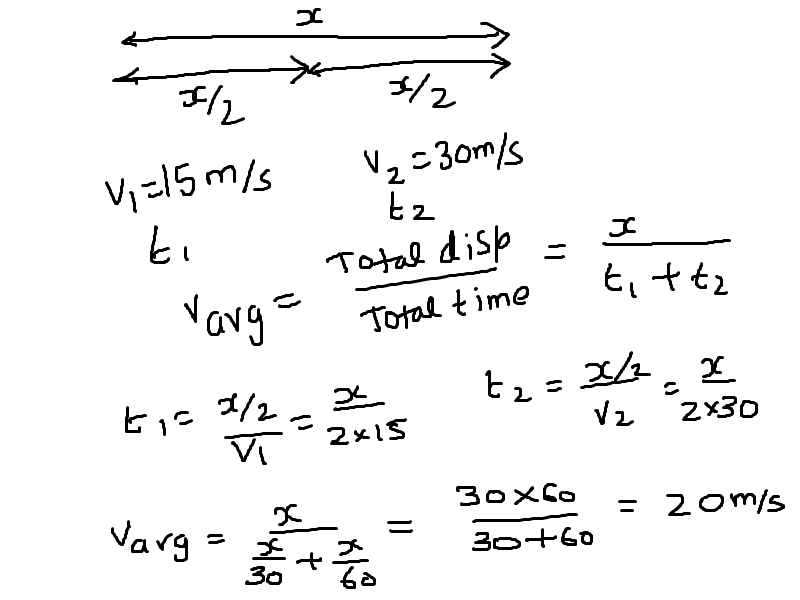 x
x/2 x/2
v₁=15 m/s v₂=30m/s
t₁ t₂
Vavg = Total disp / Total time = x / t₁ + t₂
t₁= x/2 / V₁ = x / 2×15 t₂ = x/2 / V₂ = x / 2×30
Vavg = x / x/30 + x/60 = 30×60 / 30+60 = 20m/s